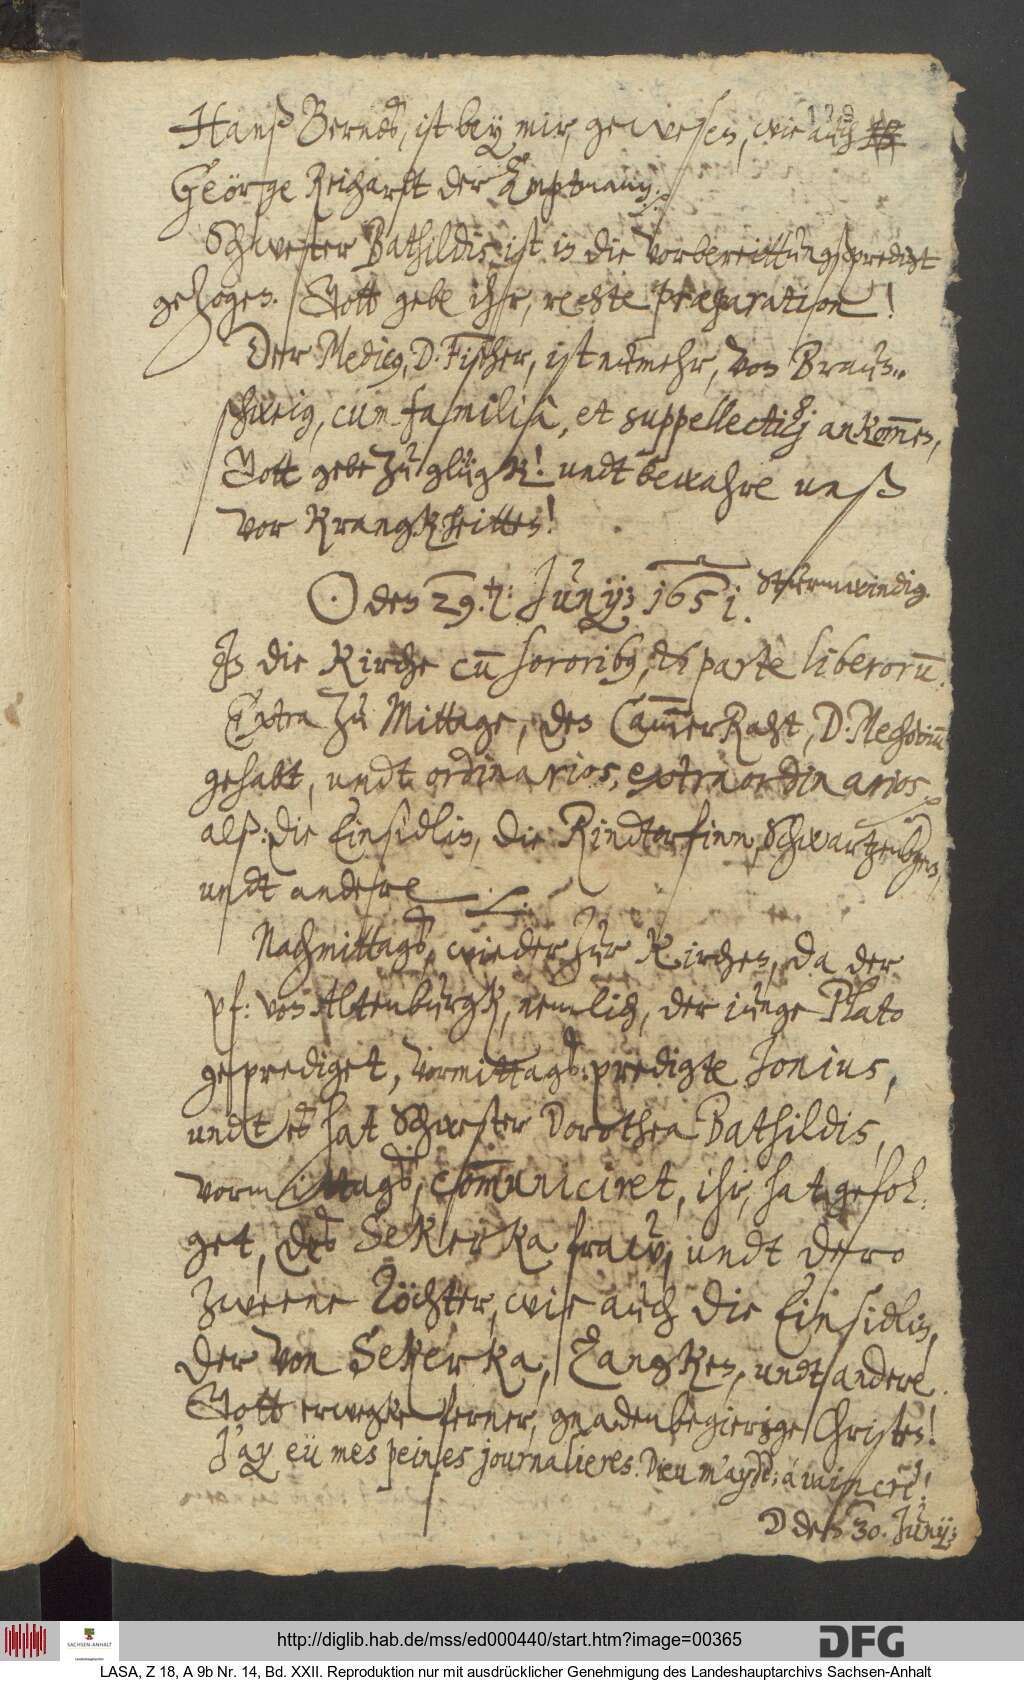 179
Hanß Berndt, ist bey mir, gewesen, wie auch
Geörge Reichardt der Amptmann.
Schwester Bathildis, ist in die vorbereittungspredigt
gezogen. Gott gebe ihr, rechte præparation!
Der Medicus, D. Fischer, ist nunmehr, von Braun¬
schweig, cum familiâ, et suppellectili ankommen,
Gott gebe zu glügk! undt bewahre unß
vor Krangkheitten!
☉ den 29.ten: Junij; 1651. Sturmwindig.
In die Kirche cum sororibus, et parte liberorum.
Extra zu Mittage, den CammerRaht, D. Mechovium
gehabt, undt ordinarios, extraordinarios
alß: die Einsidlin, die Rindtorfinn, Schwartzenbergerin,
undt andere
Nachmittags, wieder zur Kirchen, da der
pf: von Altenburgk, nemlich, der iunge Plato
geprediget, vormittags: predigte Jonius,
undt es hat Schwester Dorothea Bathildis,
vormittags, communiciret, ihr, hat gefol¬
get, des Sekerka fraw, undt dero
zweene Töchter, wie auch die Einsidlin,
der von Sekerka, Zangken, undt andere.
Gott erwegke ferner, gnadenbegierige Christen!
J'ay eü mes peines journalieres. Dieu m'ayde, á vaincre!
☽ den 30. Junij;
http://diglib.hab.de/mss/ed000440/start.htm?image=00365
SACHSEN-ANHALT
DFG
LASA, Z 18, A 9b Nr. 14, Bd. XXII. Reproduktion nur mit ausdrücklicher Genehmigung des Landeshauptarchivs Sachsen-Anhalt